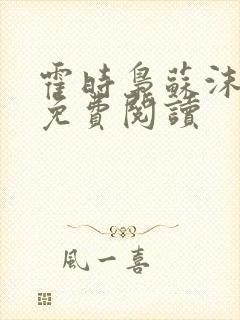 霍時梟蘇沫
免費閱讀
風一喜